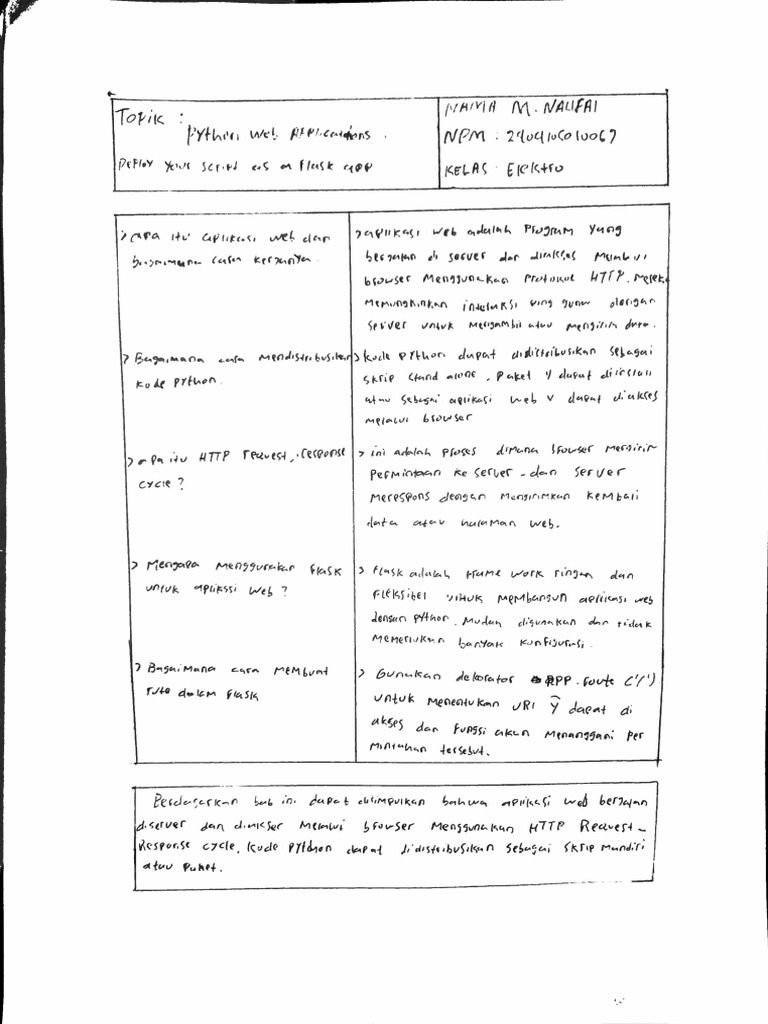 Topik :
Python Web Applications.
Deploy your script as a flask app
NAMA M. NAUFAL
NPM : 2404105010067
KELAS : Elektro
> apa itu aplikasi web dan
bagaimana cara kerjanya.
> aplikasi web adalah Program yang
berjalan di server dan diakses melalui
browser Menggunakan Protokol HTTP. Mereka
memungkinkan interaksi dengan
server untuk mengambil atau mengirim data.
> Bagaimana cara Mendistribusikan
kode python.
> kode Python dapat didistribusikan sebagai
skrip stand alone, Paket y dapat diinstall
atau sebagai aplikasi web y dapat diakses
melalui browser
> apa itu HTTP request, response
cycle ?
> ini adalah proses dimana browser mengirim
Permintaan ke server - dan server
merespons dengan Mengirimkan kembali
data atau halaman web.
> Mengapa menggunakan flask
untuk aplikasi web ?
> flask adalah frame work ringan dan
fleksibel untuk membangun aplikasi web
dengan python. Mudah digunakan dan tidak
memerlukan banyak konfigurasi.
> Bagaimana cara membuat
rute dalam flask
> Gunakan dekorator APP.route ('/')
untuk menentukan URI y dapat di
akses dan fungsi akan menanggani per
mintahan tersebut.
Berdasarkan bab ini dapat disimpulkan bahwa aplikasi web berjalan
diserver dan diakser melalui browser menggunakan HTTP Request-
Response cycle, kode python dapat didistribusikan sebagai skrip mandiri
atau paket.